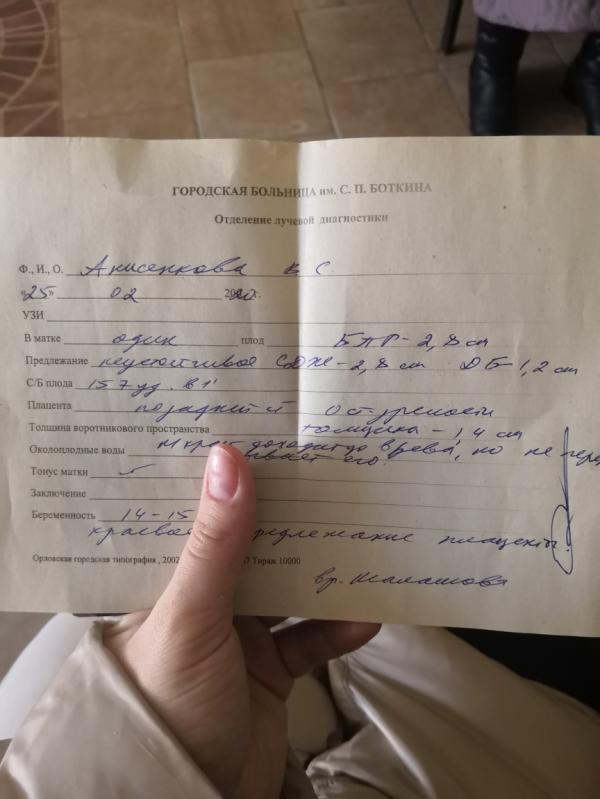 ГОРОДСКАЯ БОЛЬНИЦА им. С. П. БОТКИНА
Отделение лучевой диагностики
Ф., И., О. Анисенкова В С.
"25" 02 2020г.
УЗИ
В матке один плод БПР - 2,8 см
Предлежание неустойчивое СДЖ - 2,8 см ДБ - 1,2 см
С/Б плода 157 уд. в 1'
Плацента по задней 0 ст. зрелости
Толщина воротникового пространства толщина - 1,4 см
Околоплодные воды край доходит до зева, но не пере
его.
Тонус матки
Заключение
Беременность 14-15
краевое предлежание плаценты.
Орловская городская типография, 2002 7 Тираж 10000
вр. Малашова